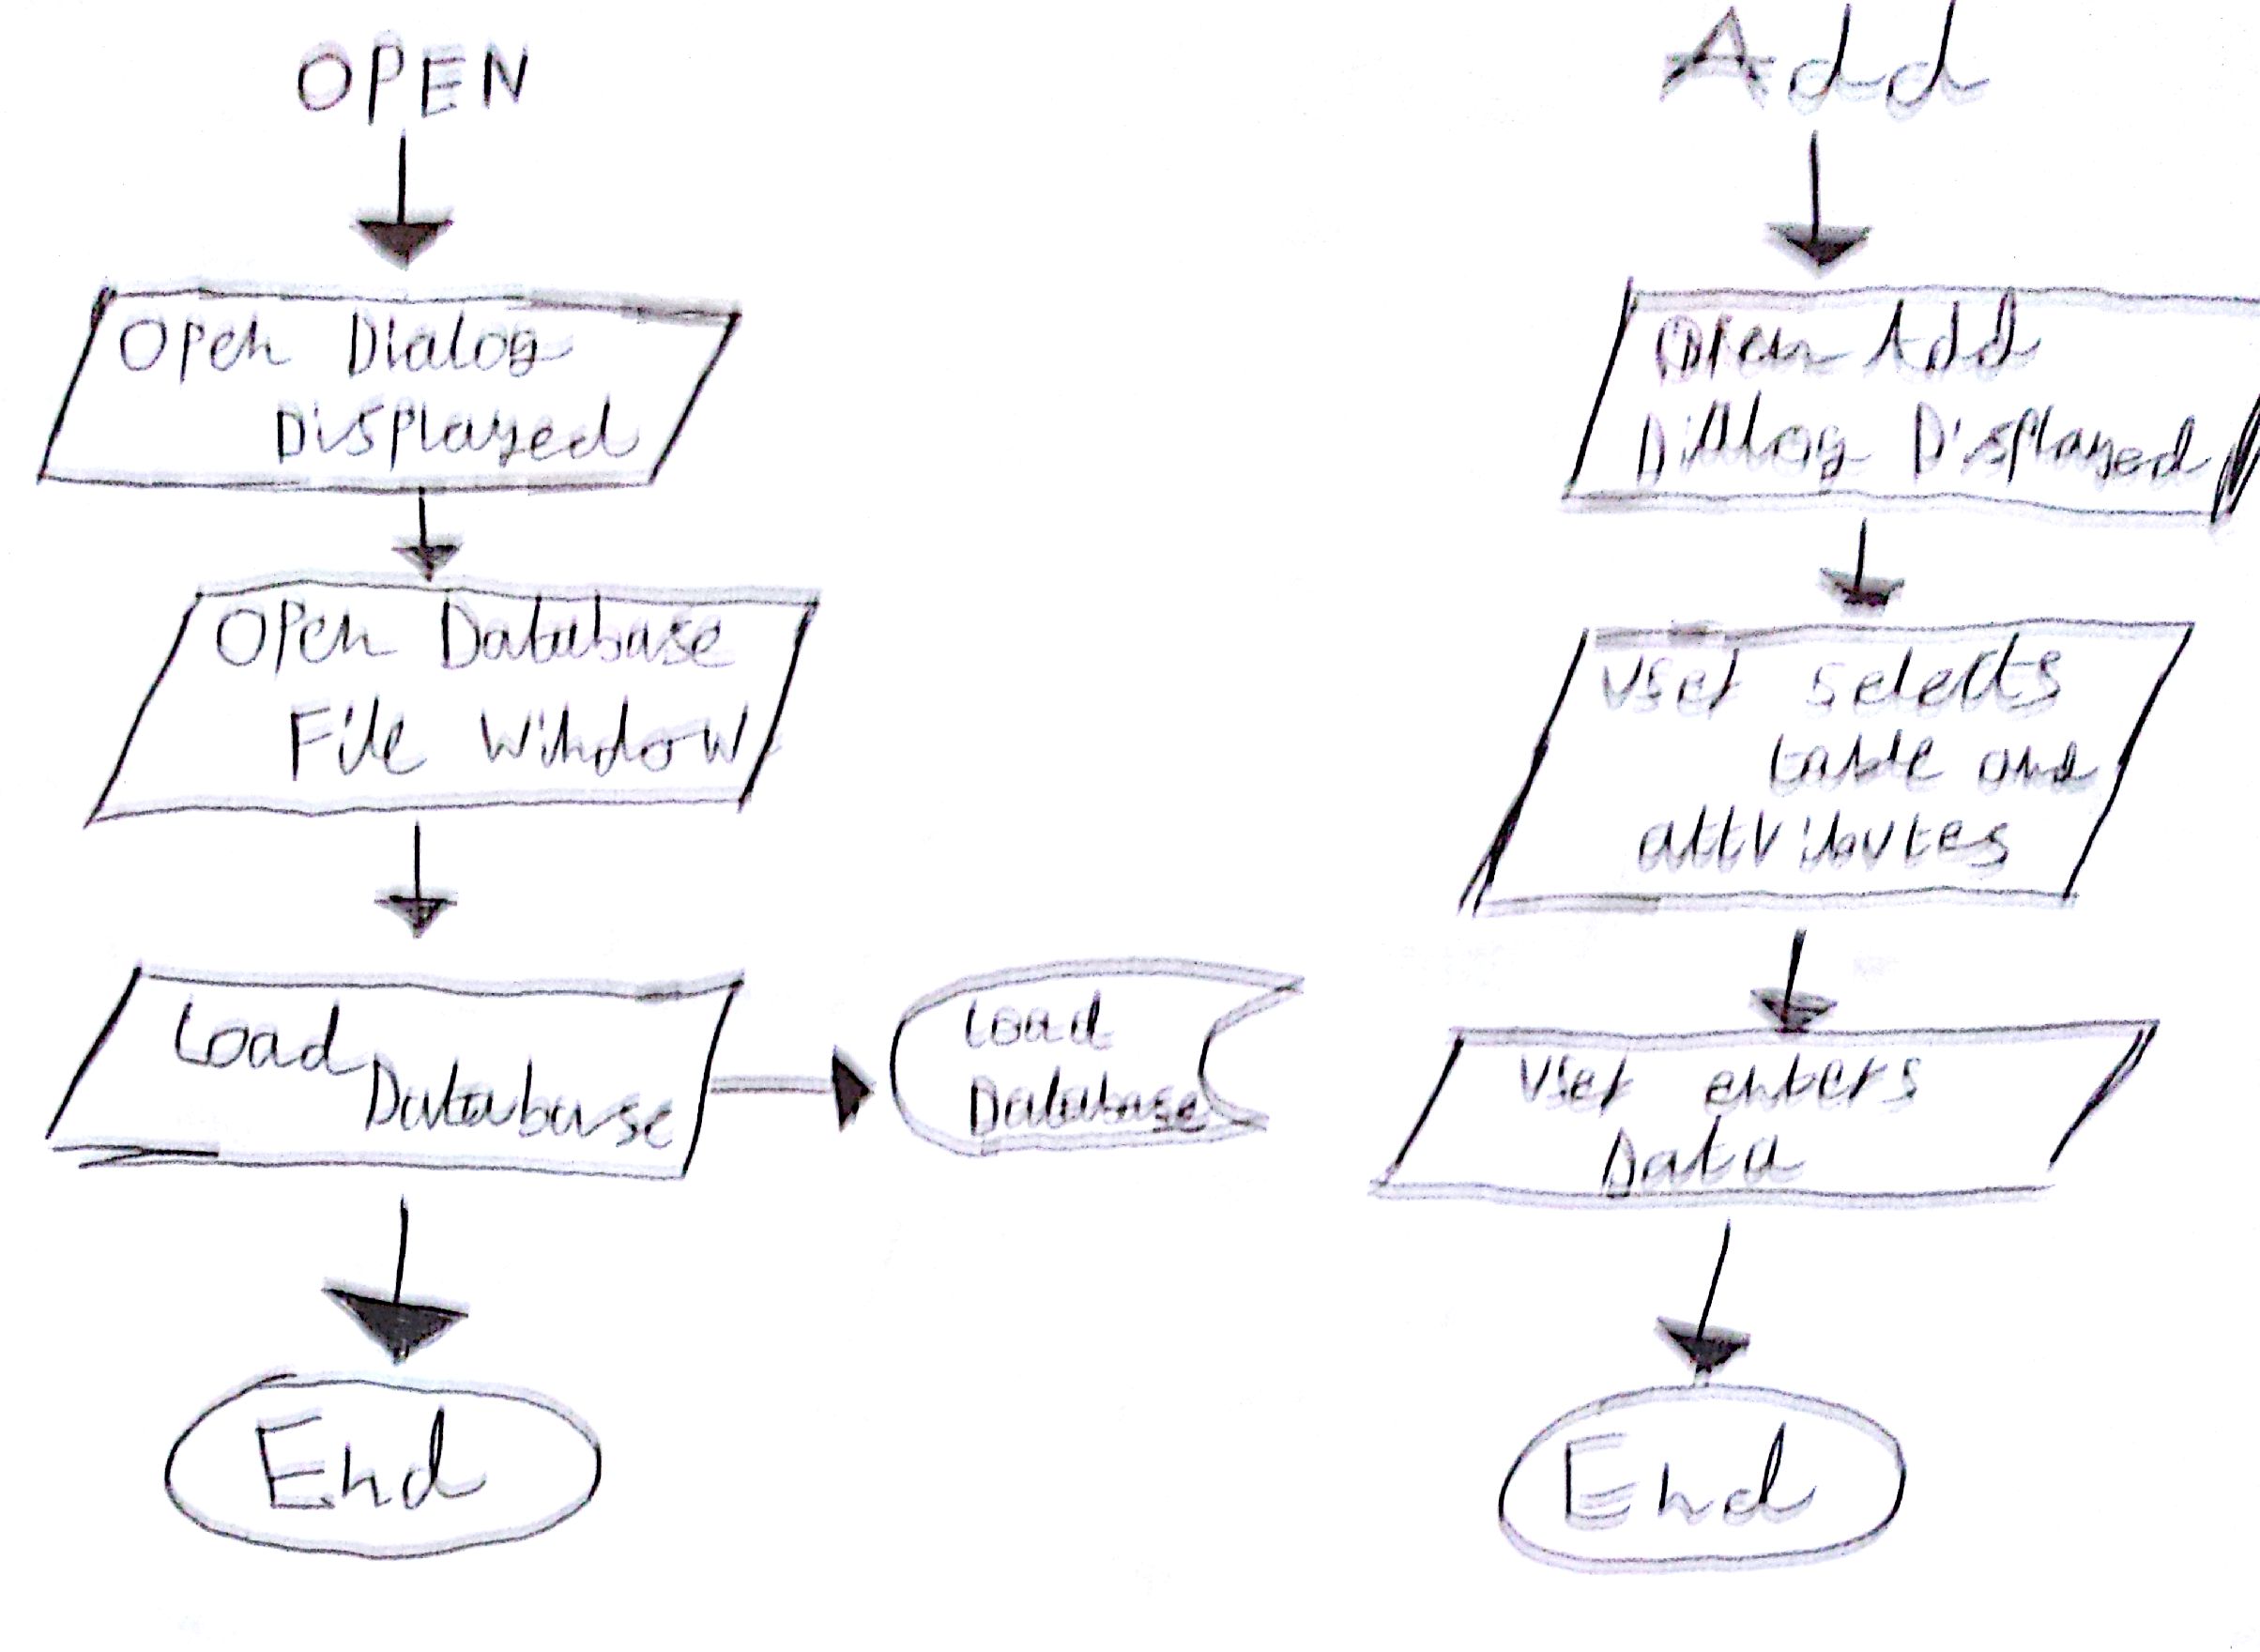 OPEN
Open Dialog
Displayed
Open Database
File Window
Load
Database
Load
Database
End
Add
Open Add
Dialog Displayed
User selects
table and
attributes
User enters
Data
End